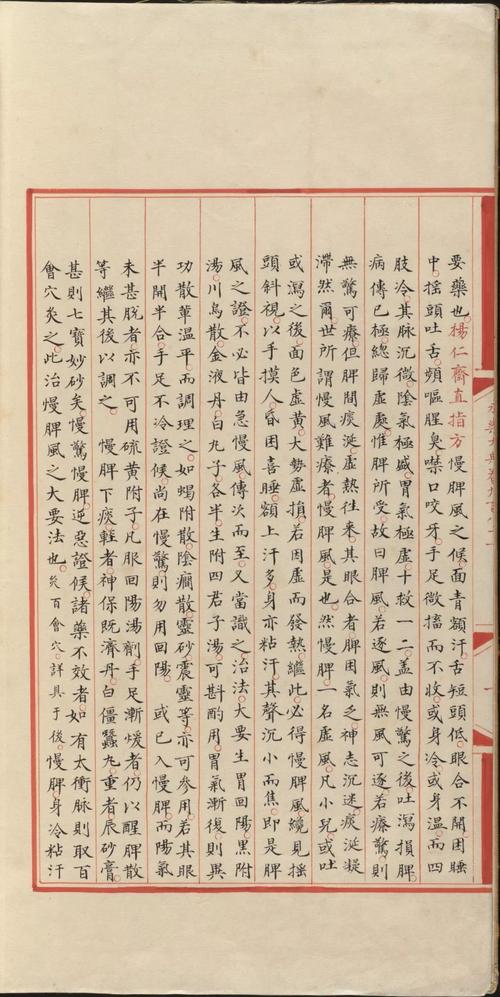 要藥也楊仁齋直指方慢脾風之候面青額汗舌短頭低眼合不開困睡
中摇頭吐舌頻嘔腥臭噤口咬牙手足微搐而不收或身冷或身温而四
肢冷其脉沉微陰氣極盛胃氣極虚十救一二盖由慢驚之後吐瀉損脾
病傳已極總歸虚處惟脾所受故曰脾風若逐風則無風可逐若療驚則
無驚可療但脾間痰涎虚熱往來其眼合者脾困氣乏神志沉迷痰涎凝
滯然爾世所謂慢風難療者慢脾風是也然慢脾一名虚風凡小兒或吐
或瀉之後面色虚黄大勢虚損若因虚而發熱繼此必得慢脾風纔見摇
頭斜視以手摸人昏困喜睡額上汗多身亦粘汗其聲沉小而焦即是脾
風之證不必皆由急慢風傳次而至又當識之治法大要生胃回陽黑附
湯川烏散金液丹白丸子各半生附四君子湯可斟酌用胃氣漸復則異
功散軰温平而調理之如蝎附散陰癇散靈砂震靈等亦可參用若其眼
半開半合手足不冷證候尚在慢驚則勿用回陽或已入慢脾而陽氣
未甚脱者亦不可用硫黄附子凡服回陽湯劑手足漸煖者仍以醒脾散
等繼其後以調之慢脾下痰輕者神保既濟丹白僵蠶丸重者辰砂膏
甚則七寳妙砂矣慢驚慢脾逆惡證候諸藥不效者如有太衝脉則取百
會穴灸之此治慢脾風之大要法也灸百會穴詳具于後慢脾身冷粘汗